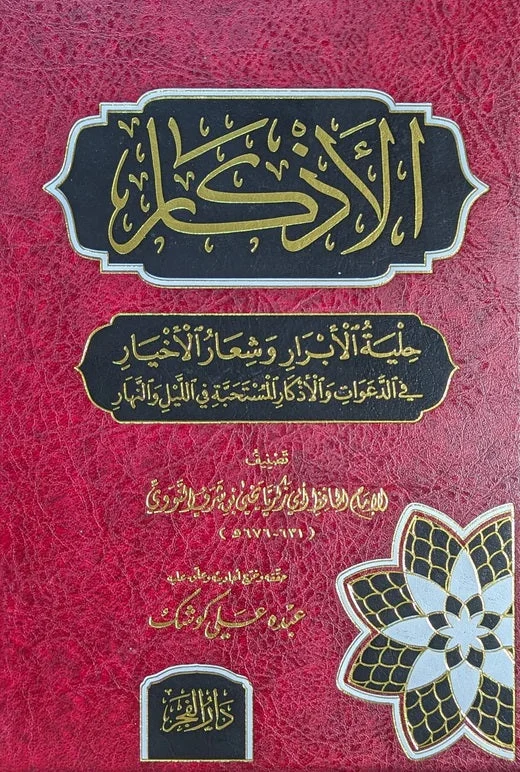 الأذكار
حِلْيَةُ ٱلْأَبْرَارِ وَشِعَارُ ٱلْأَخْيَارِ
فِي ٱلدَّعَوَاتِ وَٱلْأَذْكَارِ ٱلْمُسْتَحَبَّةِ فِي ٱللَّيْلِ وَٱلنَّهَارِ
تَصْنِيفُ
الإمام الحافظ أبي زكريا يحيى بن شرف النووي
(٦٣١-٦٧٦هـ)
حققه وخرج أحاديثه وعلق عليه
عبده علي كوشك
دار الفجر